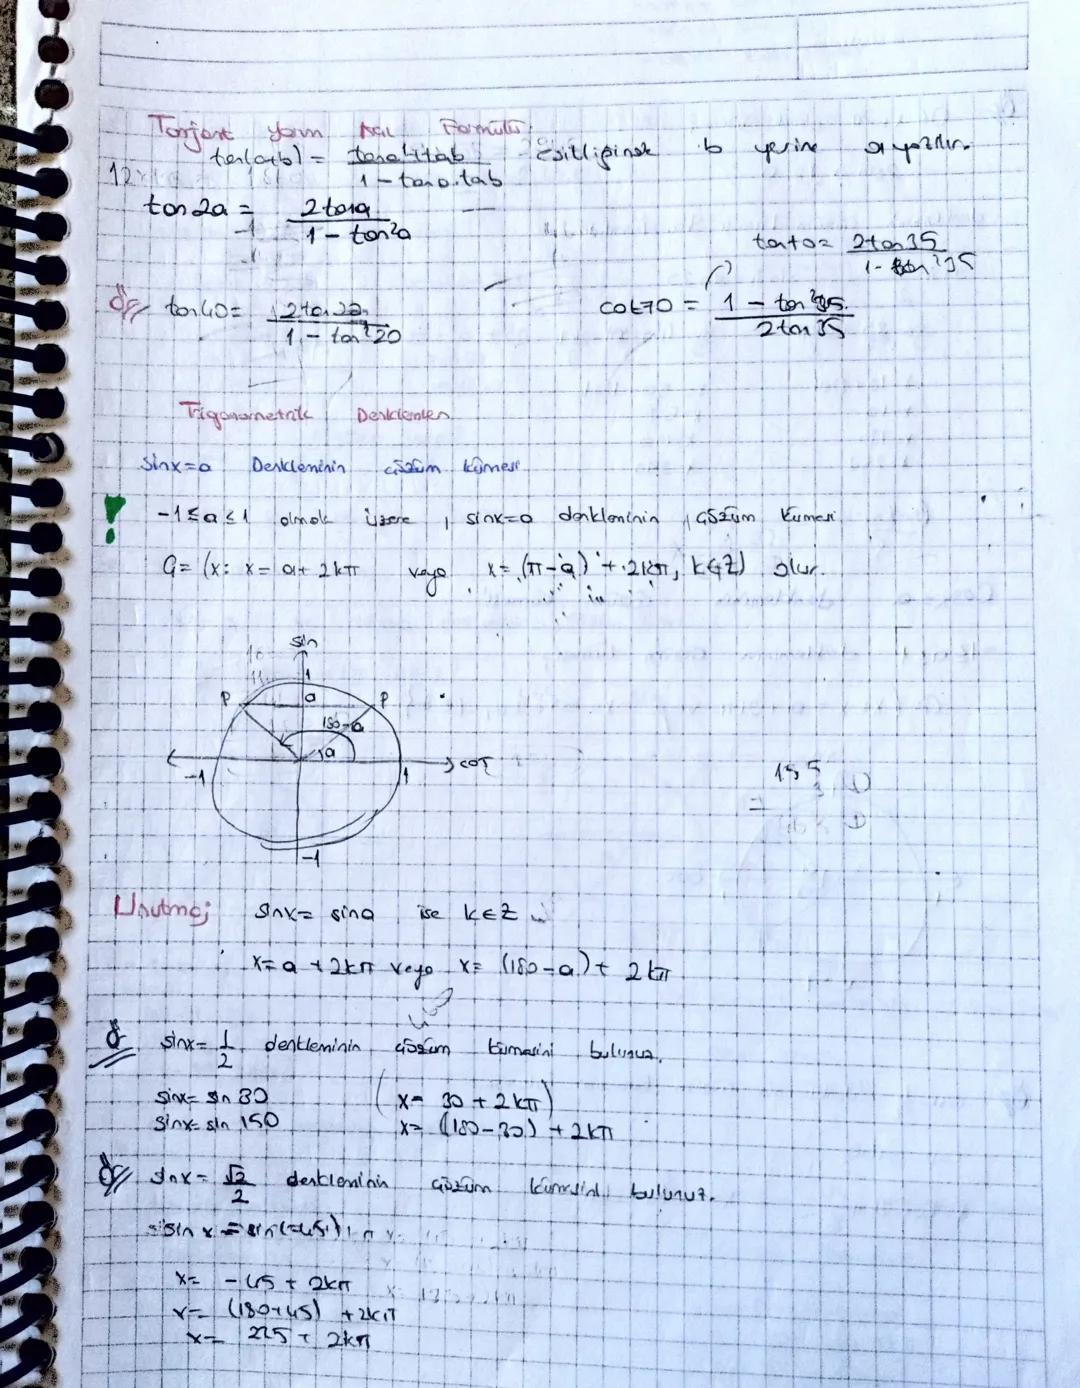 Tanjant yarım Açı Formülü
tan(a+b) = tana+tab / 1 - tana.tab eşitliğinde b yerine a yazılır.
tan 2a = 2tana / 1 - tan²a
tan70 = 2tan35 / 1 - tan²35
ör/ tan40 = 2tan20 / 1 - tan²20
cot70 = 1 - tan²35 / 2tan35
Trigonometrik Denklemler
Sinx=a Denkleminin çözüm kümesi
! -1≤a≤1 olmak üzere, sinx=a denkleminin çözüm kümesi
Ç= (x: x= a+2kπ veya x= (π-a) + 2kπ, k∈Z) olur.
sin
1
P a P
180-a
a
-1 1 cos
-1
Unutma; sinx= sina ise k∈Z
x= a + 2kπ veya x= (180-a) + 2kπ
ör sinx= 1/2 denkleminin çözüm kümesini bulunuz.
sinx= sin 30 (x= 30 + 2kπ)
sinx= sin 150 x= (180-30) + 2kπ
ör/ sinx= √2/2 denkleminin çözüm kümesini bulunuz.
sin x = sin(-45)
x= -45 + 2kπ
x= (180+45) + 2kπ
x= 225 + 2kπ